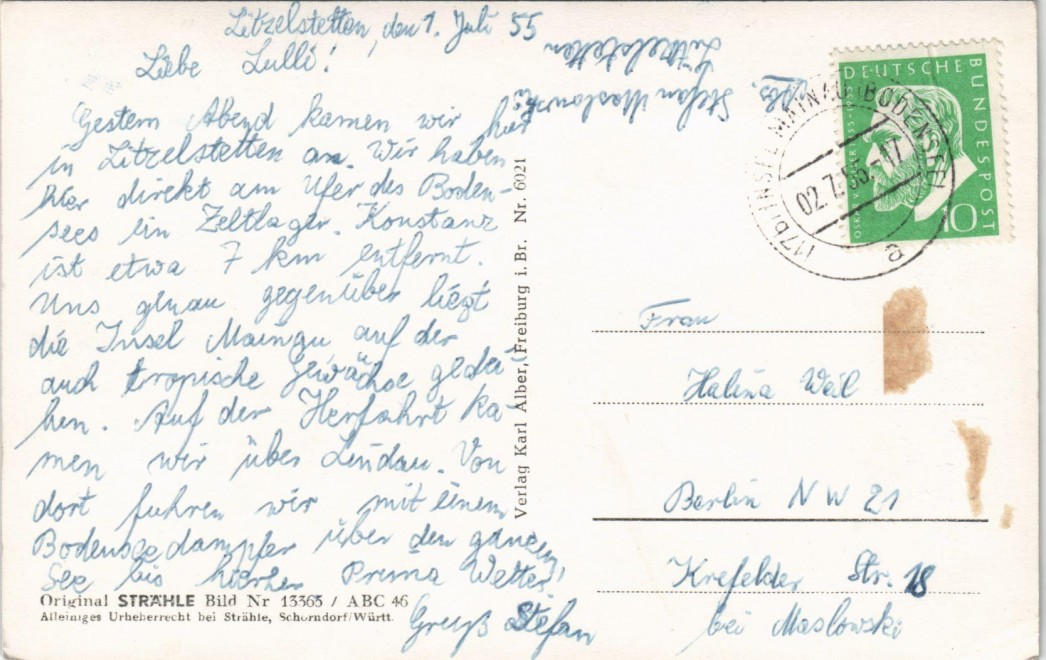 Litzelstetten, den 1. Juli 55
Liebe Lulli!
Gestern Abend kamen wir hier
in Litzelstetten an. Wir haben
hier direkt am Ufer des Boden-
sees ein Zeltlager. Konstanz
ist etwa 7 km entfernt.
Uns genau gegenüber liegt
die Insel Mainau auf der
auch tropische Gewächse gedei-
hen. Auf der Herfahrt ka-
men wir über Lindau. Von
dort fuhren wir mit einem
Bodenseedampfer über den ganzen
See bis hierher Prima Wetter!
Gruß Stefan
Original STRÄHLE Bild Nr 13365 / ABC 46
Alleiniges Urheberrecht bei Strähle, Schorndorf/Württ.
Verlag Karl Alber, Freiburg i. Br. Nr. 6021
Abs. Stefan Maslowski
Litzelstetten
DEUTSCHE BUNDESPOST
10
(17b) INSEL MAINAU (BODENSEE)
02.7.55.-17
a
Frau
Halina Weil
Berlin NW 21
Krefelder Str. 18
bei Maslowski